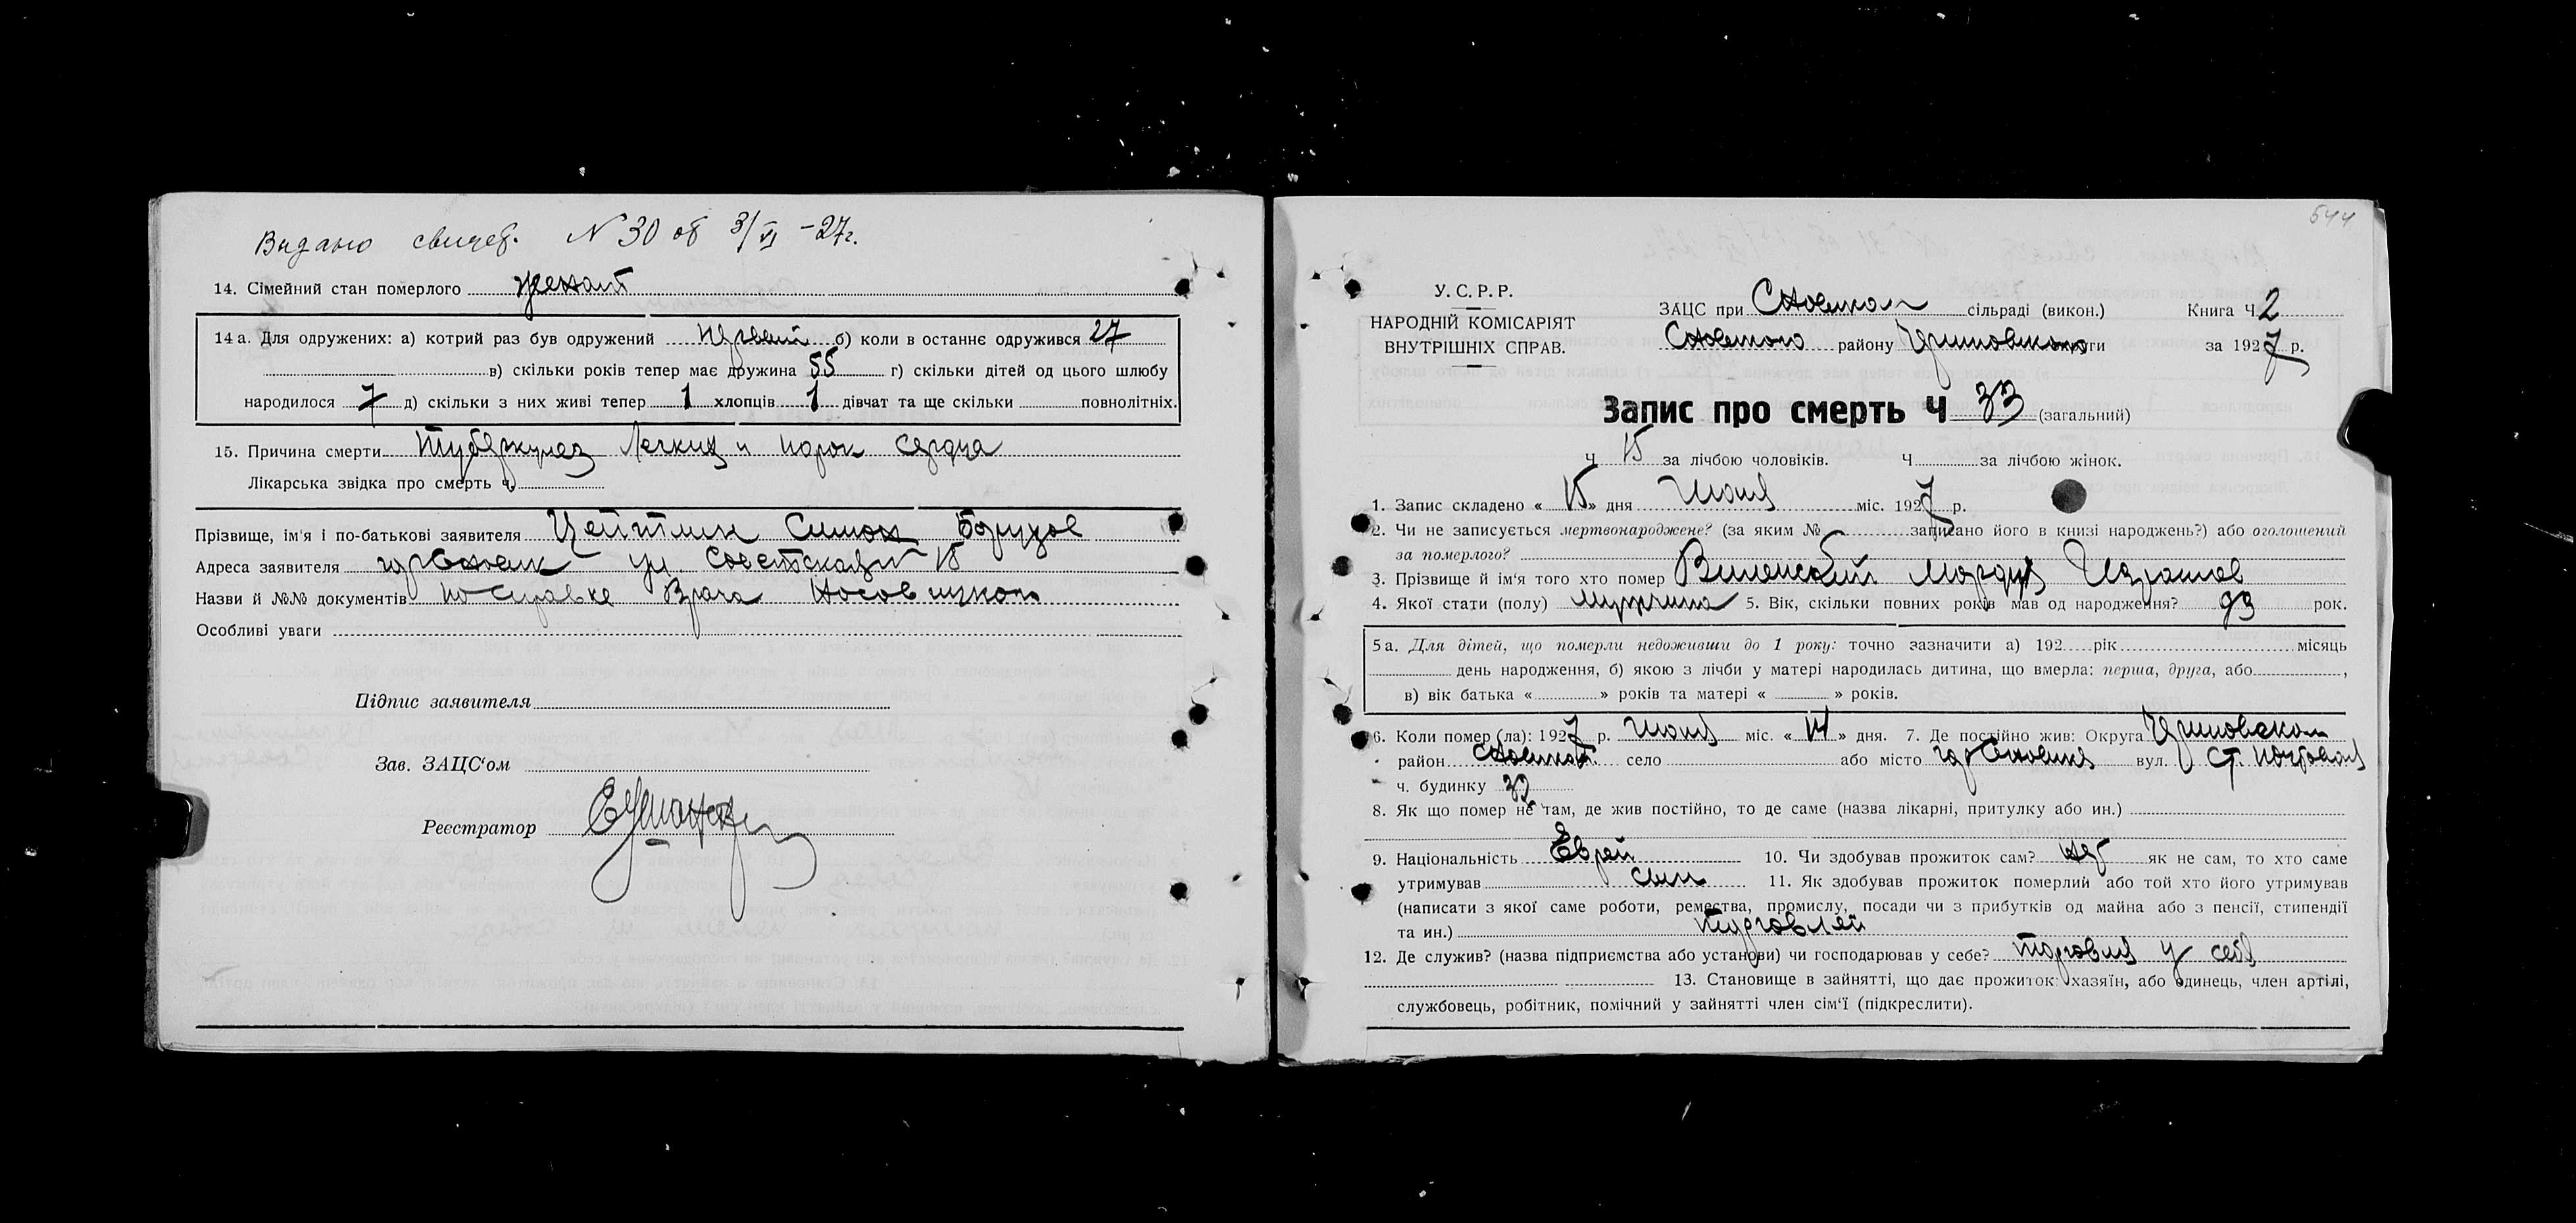 Видано свидет. N 30 от 3/VI -27г.
14. Сімейний стан померлого женат
14 а. Для одружених: а) котрий раз був одружений первый б) коли в останнє одружився 27
в) скільки років тепер має дружина 55 г) скільки дітей од цього шлюбу
народилося 7 д) скільки з них живі тепер 1 хлопців 1 дівчат та ще скільки повнолітніх.
15. Причина смерти Туберкулез Легких и порок сердца
Лікарська звідка про смерть ч.
Прізвище, ім'я і по-батькові заявителя Цейтлин Симон
Адреса заявителя гор Сновск ул. Советская 15
Назви й №№ документів по справке Врача
Особливі уваги
Підпис заявителя
Зав. ЗАЦС'ом
Реєстратор
544
У. С. Р. Р.
НАРОДНІЙ КОМІСАРІЯТ
ВНУТРІШНІХ СПРАВ.
ЗАЦС при Сновском сільраді (викон.) Книга Ч 2
Сновского району округи за 1927 р.
Запис про смерть Ч 33 (загальний)
Ч 15 за лічбою чоловіків. Ч за лічбою жінок.
1. Запис складено « 15 » дня Июня міс. 1927 р.
2. Чи не записується мертвонароджене? (за яким № записано його в книзі народжень?) або оголошений
за померлого?
3. Прізвище й ім'я того хто помер Виленский Мордух Израилев
4. Якої стати (полу) мужчина 5. Вік, скільки повних років мав од народження? 93 рок.
5 а. Для дітей, що померли недоживши до 1 року: точно зазначити а) 192 рік місяць
день народження, б) якою з лічби у матері народилась дитина, що вмерла: перша, друга, або ,
в) вік батька « » років та матері « » років.
6. Коли помер (ла): 1927 р. Июня міс. « 14 » дня. 7. Де постійно жив: Округа
район Сновский село або місто гор Сновск вул. Ст. Почтовая
ч. будинку 32
8. Як що помер не там, де жив постійно, то де саме (назва лікарні, притулку або ин.)
9. Національність Еврей 10. Чи здобував прожиток сам? нет як не сам, то хто саме
утримував сын 11. Як здобував прожиток померлий або той хто його утримував
(написати з якої саме роботи, ремества, промислу, посади чи з прибутків од майна або з пенсії, стипендії
та ин.) торговлей
12. Де служив? (назва підприємства або установи) чи господарював у себе? торговля у себя
13. Становище в зайнятті, що дає прожиток: хазяїн, або одинець, член артілі,
службовець, робітник, помічний у зайнятті член сім'ї (підкреслити).